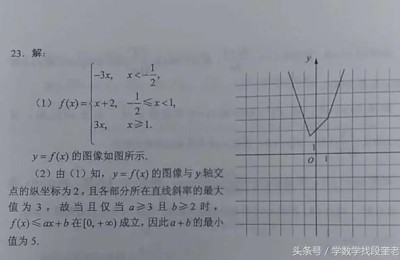 23. 解:
-3x, x<-1/2,
(1) f(x)={x+2, -1/2≤x<1,
3x, x≥1.
y=f(x) 的图像如图所示.
(2) 由 (1) 知, y=f(x) 的图像与 y 轴交
点的纵坐标为 2, 且各部分所在直线斜率的最大
值为 3, 故当且仅当 a≥3 且 b≥2 时,
f(x)≤ax+b 在 [0, +∞) 成立, 因此 a+b 的最小
值为 5.
y
1
O 1
头条号 / 学数学找段奎老